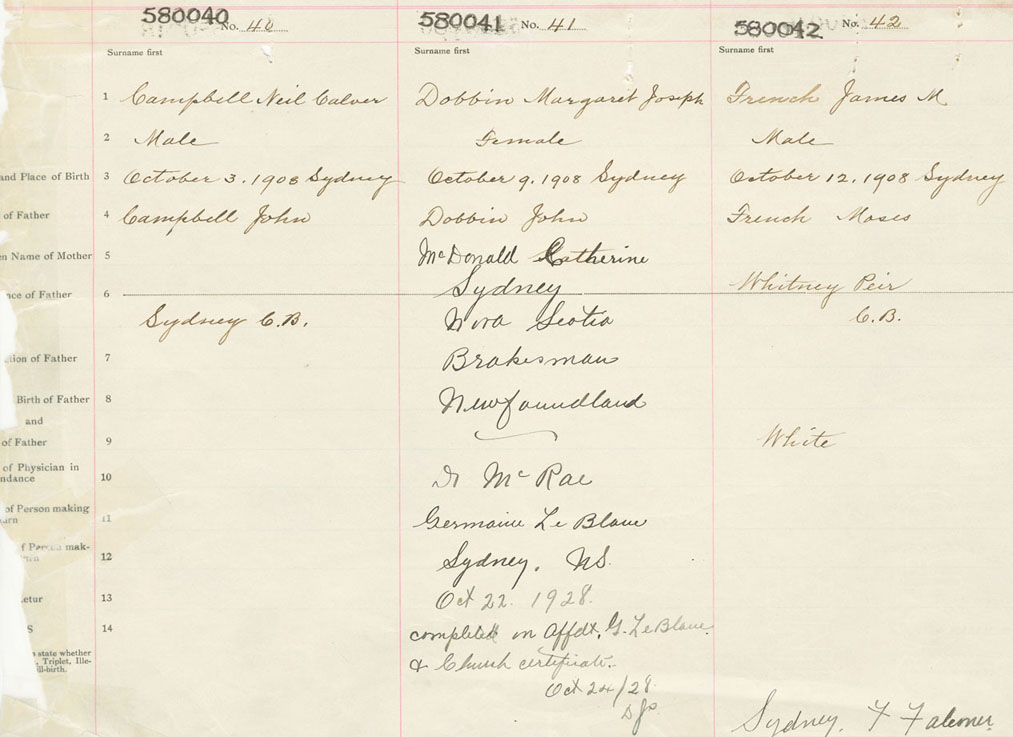 580040 No. 40
580041 No. 41
580042 No. 42
Surname first
Surname first
Surname first
1 Campbell Neil Calver
Dobbin Margaret Joseph
French James M
2 Male
Female
Male
and Place of Birth 3 October 3. 1908 Sydney
October 9. 1908 Sydney
October 12. 1908 Sydney
of Father 4 Campbell John
Dobbin John
French Moses
n Name of Mother 5
McDonald Catherine
nce of Father 6
Sydney
Whitney Peir
Sydney C.B.
Nova Scotia
C.B.
tion of Father 7
Brakesman
Birth of Father 8
Newfoundland
and
of Father 9
White
of Physician in
ndance
10
Dr McRae
of Person making
urn
11
Germaine Le Blanc
f Person mak-
12
Sydney. NS.
etur 13
Oct 22. 1928.
S 14
completed on Affdt. G. LeBlanc
& Church certificate.
n state whether
, Triplet, Ille-
ill-birth.
Oct 24/28
Sydney. F Falconer